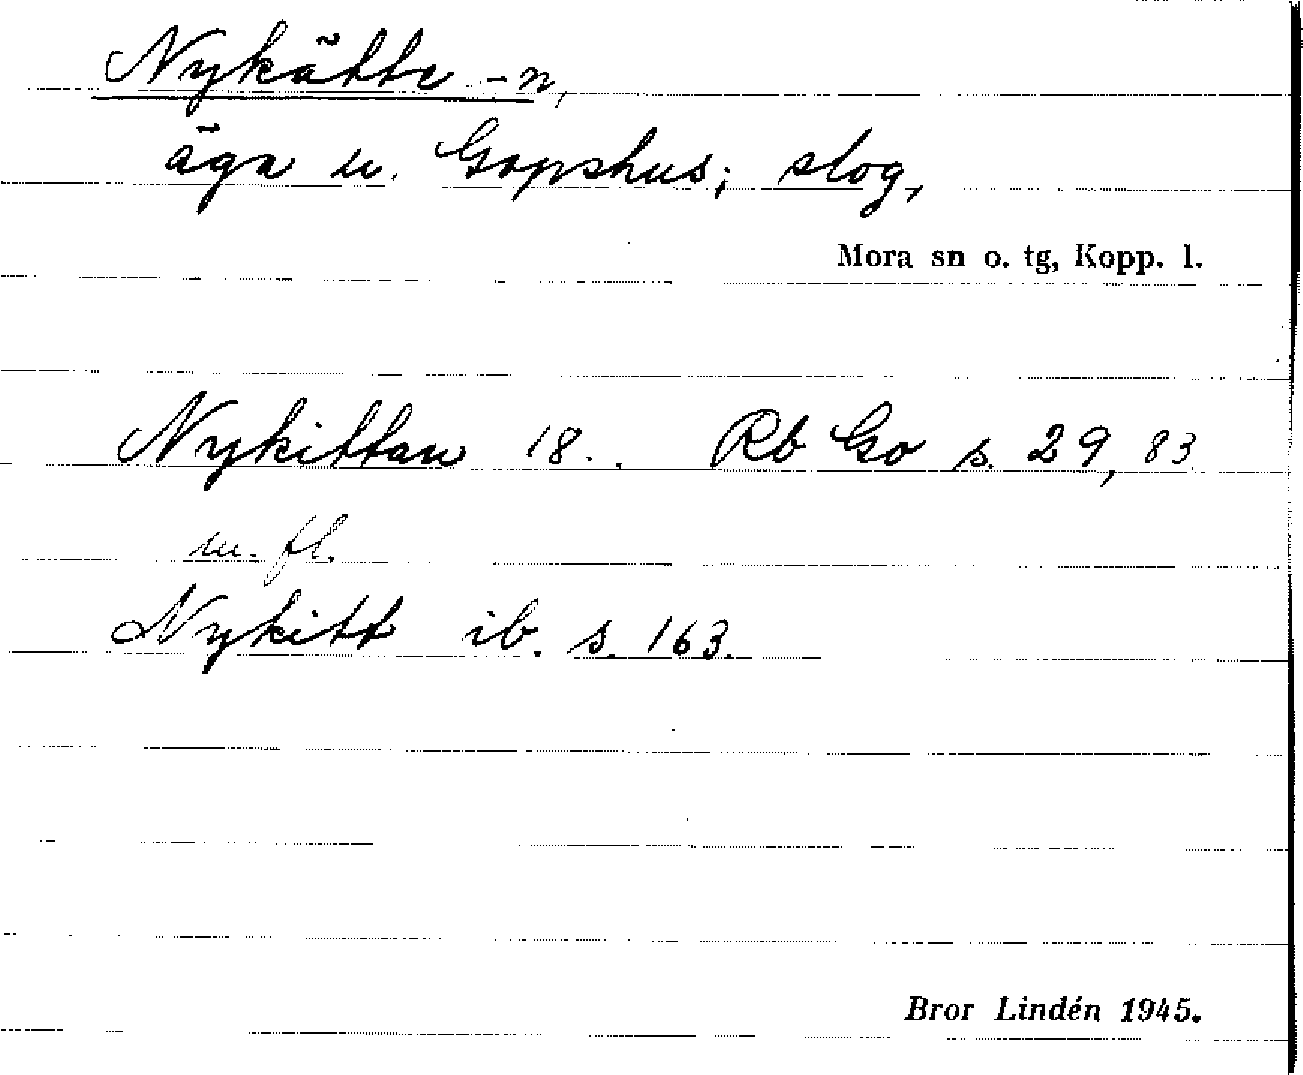 Nykätte -n,
äga u. Gopshus; slog,
Mora sn o. tg, Kopp. l.
Nykittan 18. . Rb Go s. 29, 83
m. fl.
Nykitt ib. s. 163.
Bror Lindén 1945.